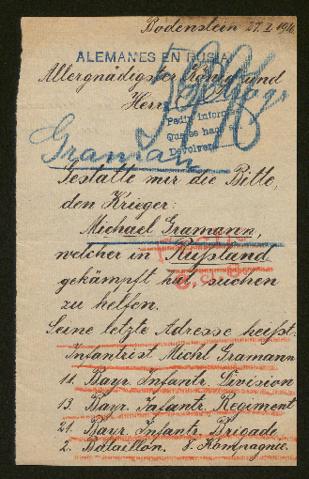 Bodenstein 27. I 1916.
ALEMANES EN RUSIA
Allergnädigster König und
Herr
Pedir inform
Devolver
Gramann
Gestatte mir die Bitte,
den Krieger:
Michael Gramann,
welcher in Rußland
gekämpft hat, suchen
zu helfen.
Seine letzte Adresse heißt:
Infantrist Michl Gramann
11. Bayr. Infantr. Division
13. Bayr. Infantr. Regiment
21. Bayr. Infantr. Brigade
2. Bataillon, 8. Kompagnie.